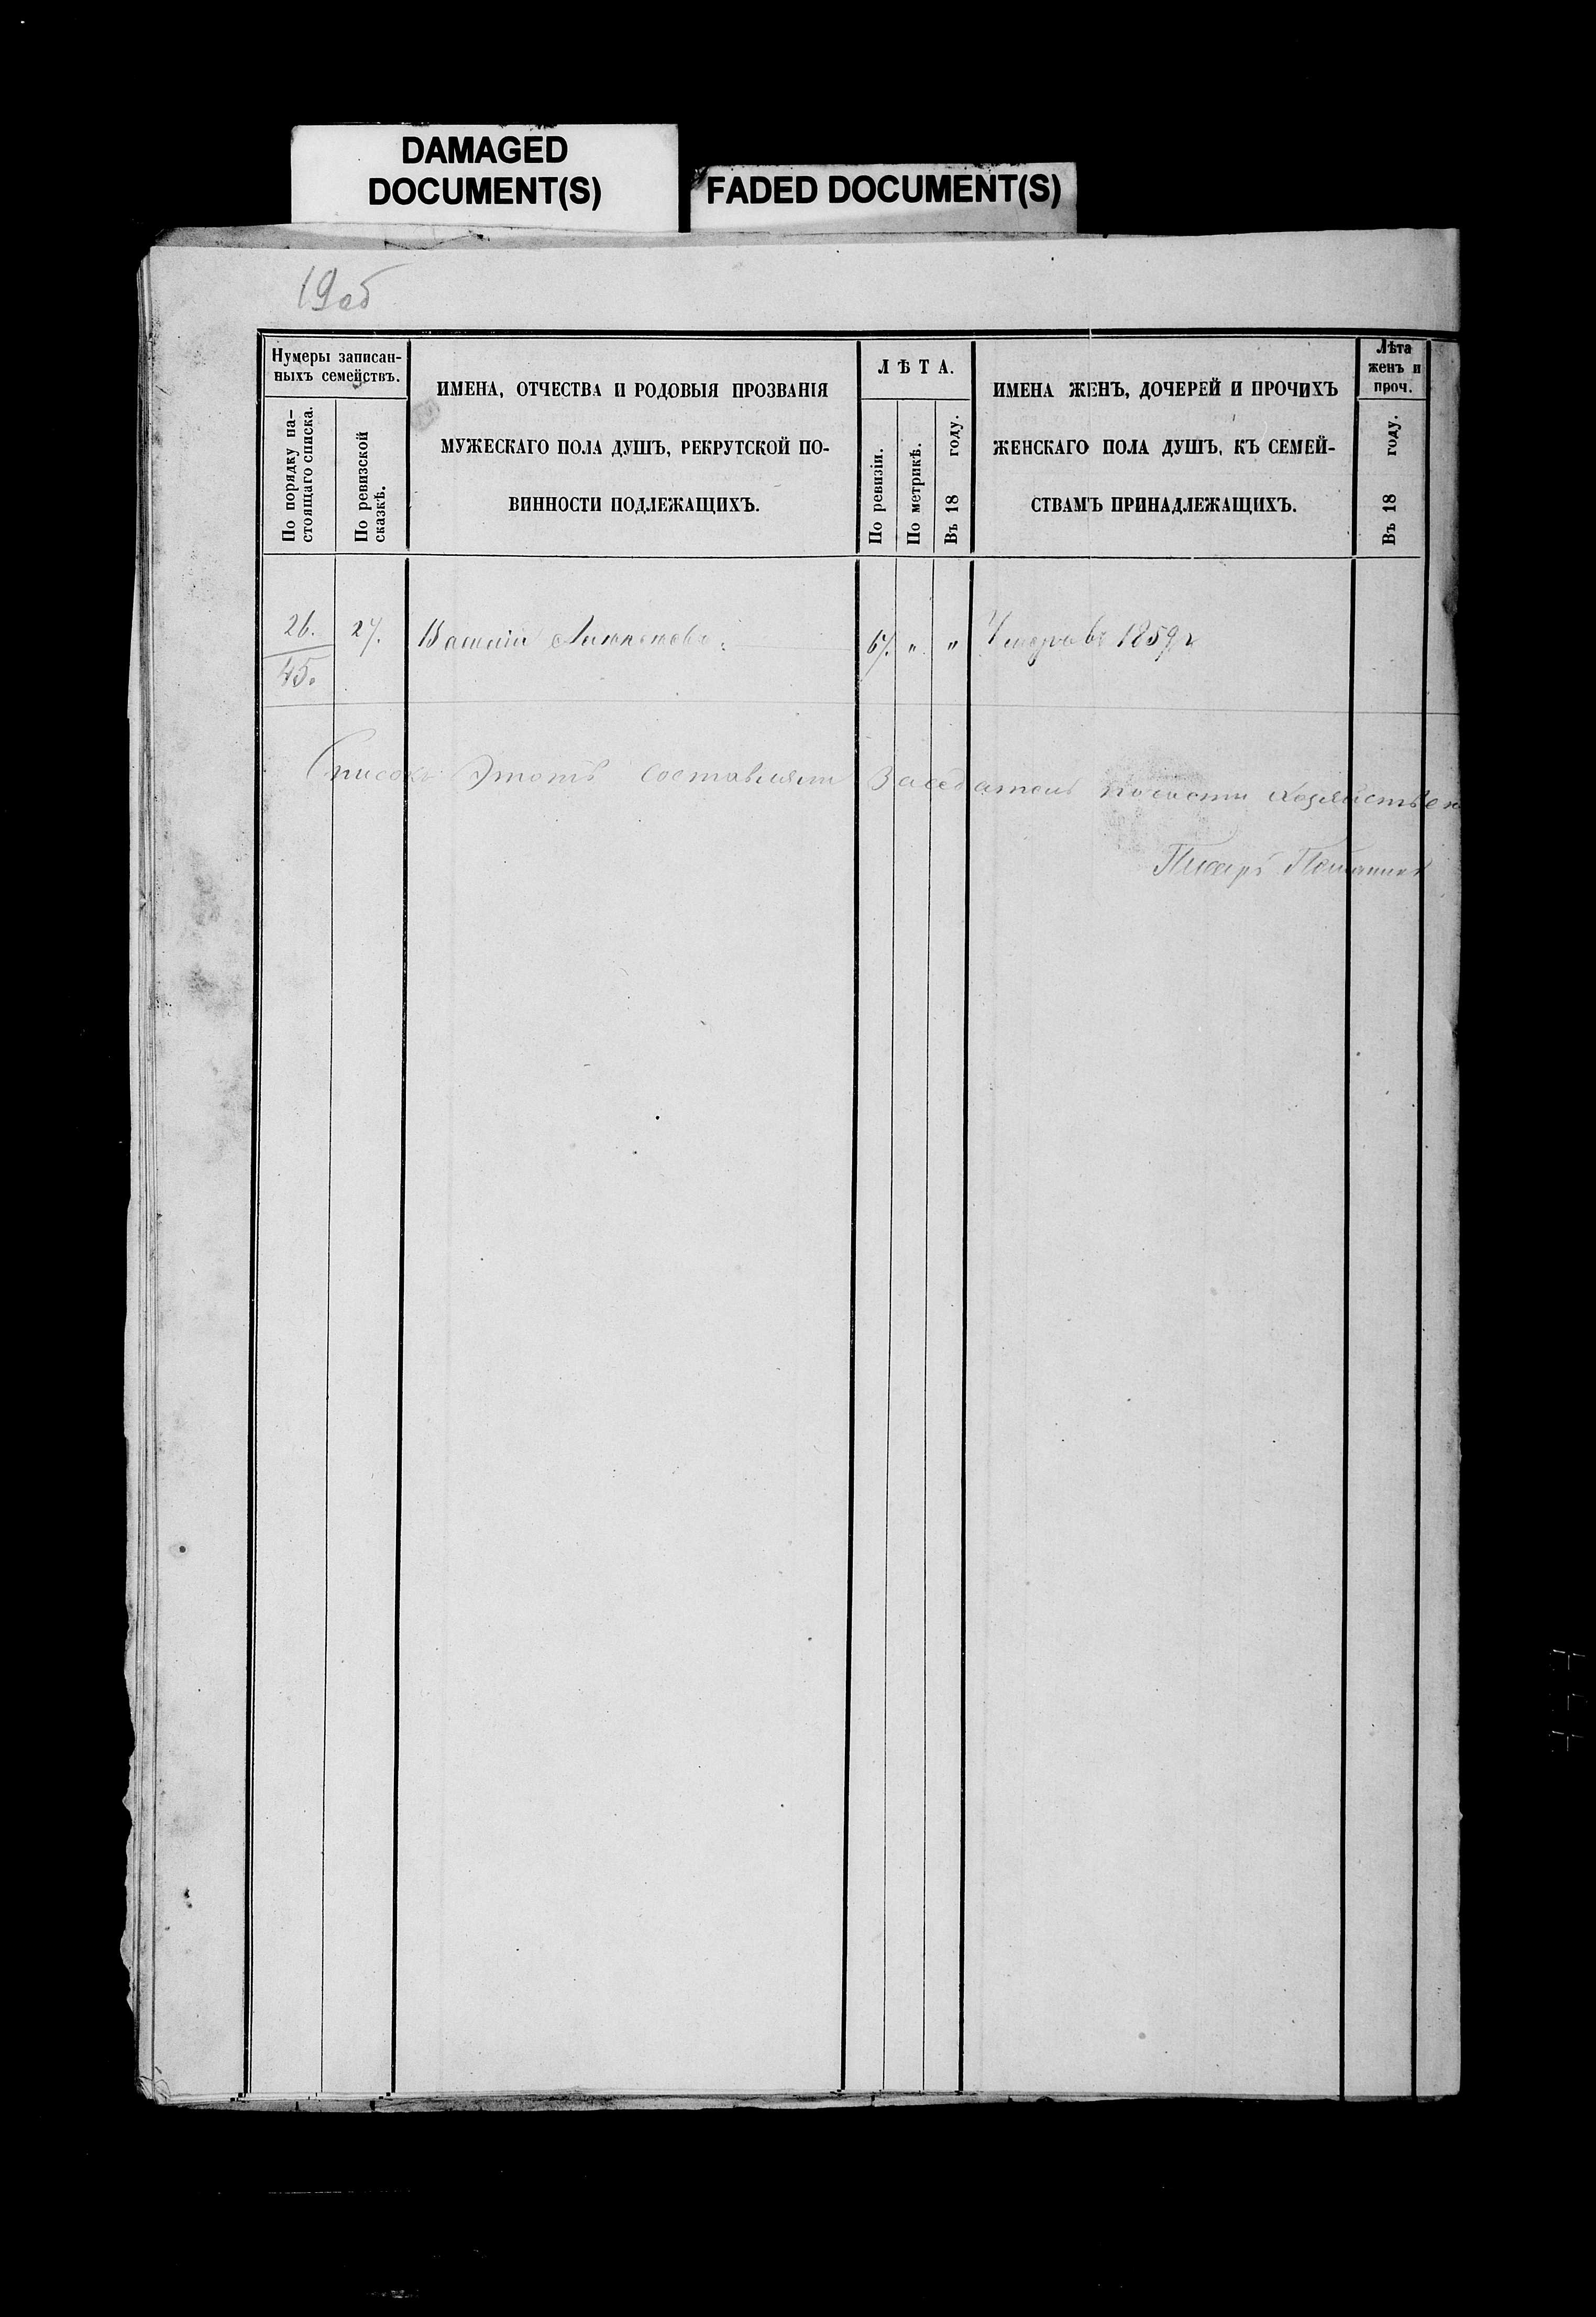 DAMAGED
DOCUMENT(S)
FADED DOCUMENT(S)
19об
Нумеры записан-
ныхъ семействъ.
По порядку на-
стоящаго списка.
По ревизской
сказкѣ.
ИМЕНА, ОТЧЕСТВА И РОДОВЫЯ ПРОЗВАНІЯ
МУЖЕСКАГО ПОЛА ДУШЪ, РЕКРУТСКОЙ ПО-
ВИННОСТИ ПОДЛЕЖАЩИХЪ.
ЛѢТА.
По ревизіи.
По метрикѣ.
Въ 18 году.
ИМЕНА ЖЕНЪ, ДОЧЕРЕЙ И ПРОЧИХЪ
ЖЕНСКАГО ПОЛА ДУШЪ, КЪ СЕМЕЙ-
СТВАМЪ ПРИНАДЛЕЖАЩИХЪ.
Лѣта
женъ и
проч.
Въ 18 году.
26. 27. Василій 67. " " Умеръ въ 1859 г
45.
Списокъ Этотъ составляли Заседатель волости
Писарь